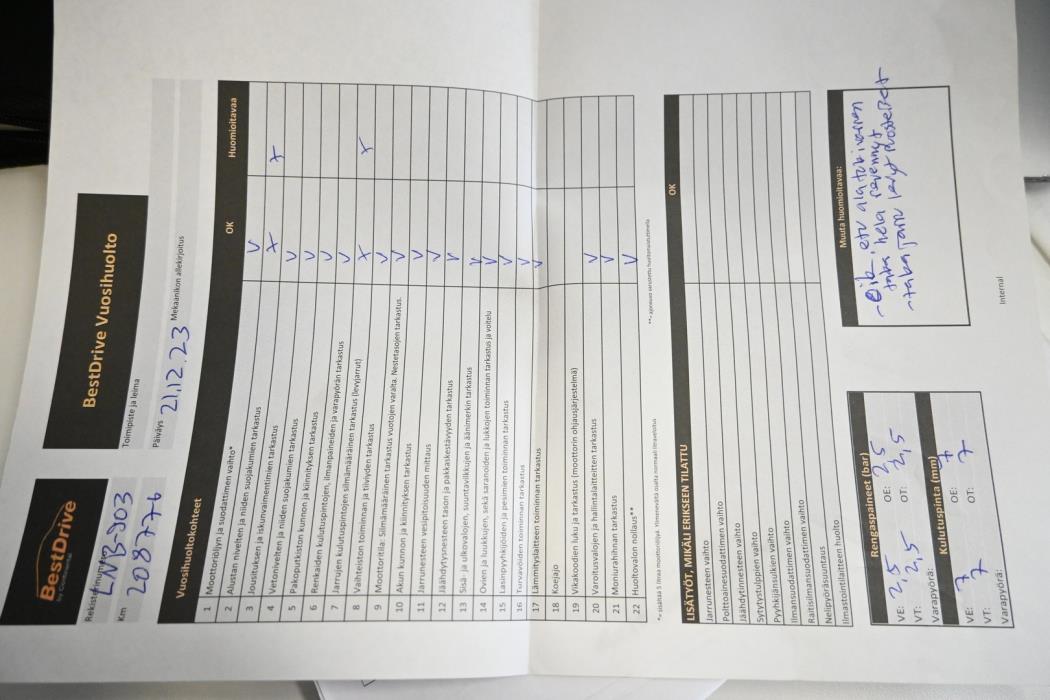 BestDrive
by Continental
BestDrive Vuosihuolto
Rekisterinumero
LNB-903
Toimipiste ja leima
Km
208776
Päiväys 21.12.23 Mekaanikon allekirjoitus
Vuosihuoltokohteet OK Huomioitavaa
1 Moottoriöljyn ja suodattimen vaihto* V
2 Alustan nivelten ja niiden suojakumien tarkastus X X
3 Jousituksen ja iskunvaimentimien tarkastus V
4 Vetonivelten ja niiden suojakumien tarkastus V
5 Pakoputkiston kunnon ja kiinnityksen tarkastus V
6 Renkaiden kulutuspintojen, ilmanpaineiden ja varapyörän tarkastus V
7 Jarrujen kulutuspintojen silmämääräinen tarkastus (levyjarrut) X X
8 Vaihteiston toiminnan ja tiiviyden tarkastus V
9 Moottoritila: Silmämääräinen tarkastus vuotojen varalta. Nestetasojen tarkastus. V
10 Akun kunnon ja kiinnityksen tarkastus V
11 Jarrunesteen vesipitoisuuden mittaus V
12 Jäähdytysnesteen tason ja pakkaskestävyyden tarkastus V
13 Sisä- ja ulkovalojen, suuntavilkkujen ja äänimerkin tarkastus V
14 Ovien ja luukkujen, sekä saranoiden ja lukkojen toiminnan tarkastus ja voitelu V
15 Lasinpyyhkijöiden ja pesimien toiminnan tarkastus V
16 Turvavöiden toiminnan tarkastus V
17 Lämmityslaitteen toiminnan tarkastus V
18 Koeajo
19 Vikakoodien luku ja tarkastus (moottorin ohjausjärjestelmä)
20 Varoitusvalojen ja hallintalaitteitten tarkastus V
21 Moniurahihnan tarkastus V
22 Huoltovalon nollaus** V
LISÄTYÖT, MIKÄLI ERIKSEEN TILATTU OK
Jarrunesteen vaihto
Polttoainesuodattimen vaihto
Jäähdytinesteen vaihto
Sytytystulppien vaihto
Pyyhkijänsulkien vaihto
Ilmansuodattimen vaihto
Raitisilmansuodattimen vaihto
Nelipyöräsuuntaus
Ilmastointilaitteen huolto
Rengaspaineet (bar)
VE: 2,5 OE: 2,5
VT: 2,5 OT: 2,5
Varapyörä:
Kulutuspinta (mm)
VE: 7 OE: 7
VT: 7 OT: 7
Varapyörä:
Muuta huomioitavaa:
- Oik. etu alatukivarren
taka hela revennyt
- taka jarru levyt ruosteiset
Internal